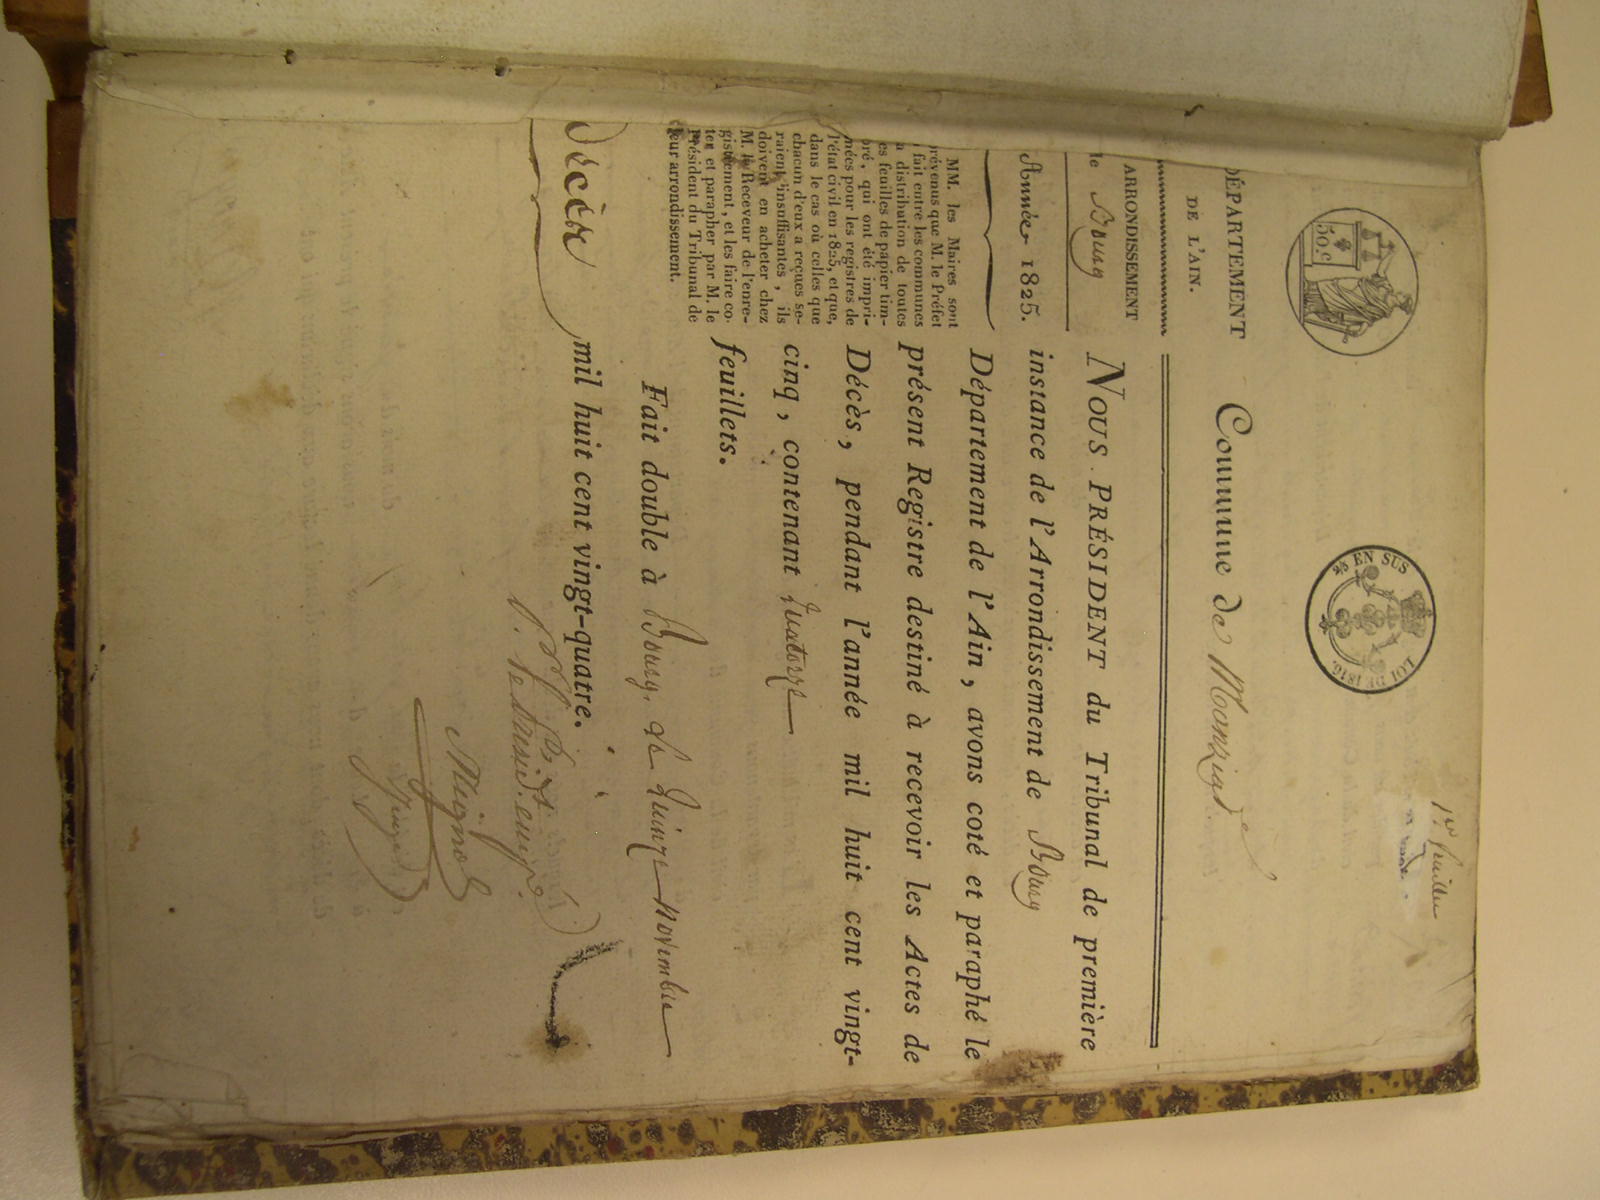 1er feuillet
50.c
2/5 EN SUS
LOI DE 1816.
DÉPARTEMENT
DE L'AIN.
Commune de
ARRONDISSEMENT
de Bourg
Année 1825.
MM. les Maires sont
prévenus que M. le Préfet
a fait entre les communes
la distribution de toutes
les feuilles de papier tim-
bré, qui ont été impri-
mées pour les registres de
l'état civil en 1825, et que,
dans le cas où celles que
chacun d'eux a reçues se-
raient insuffisantes, ils
doivent en acheter chez
M. le Receveur de l'enre-
gistrement, et les faire co-
ter et parapher par M. le
Président du Tribunal de
leur arrondissement.
Décès
NOUS PRÉSIDENT du Tribunal de première
instance de l'Arrondissement de Bourg
Département de l'Ain, avons coté et paraphé le
présent Registre destiné à recevoir les Actes de
Décès, pendant l'année mil huit cent vingt-
cinq, contenant quatorze
feuillets.
Fait double à Bourg, le quinze novembre
mil huit cent vingt-quatre.